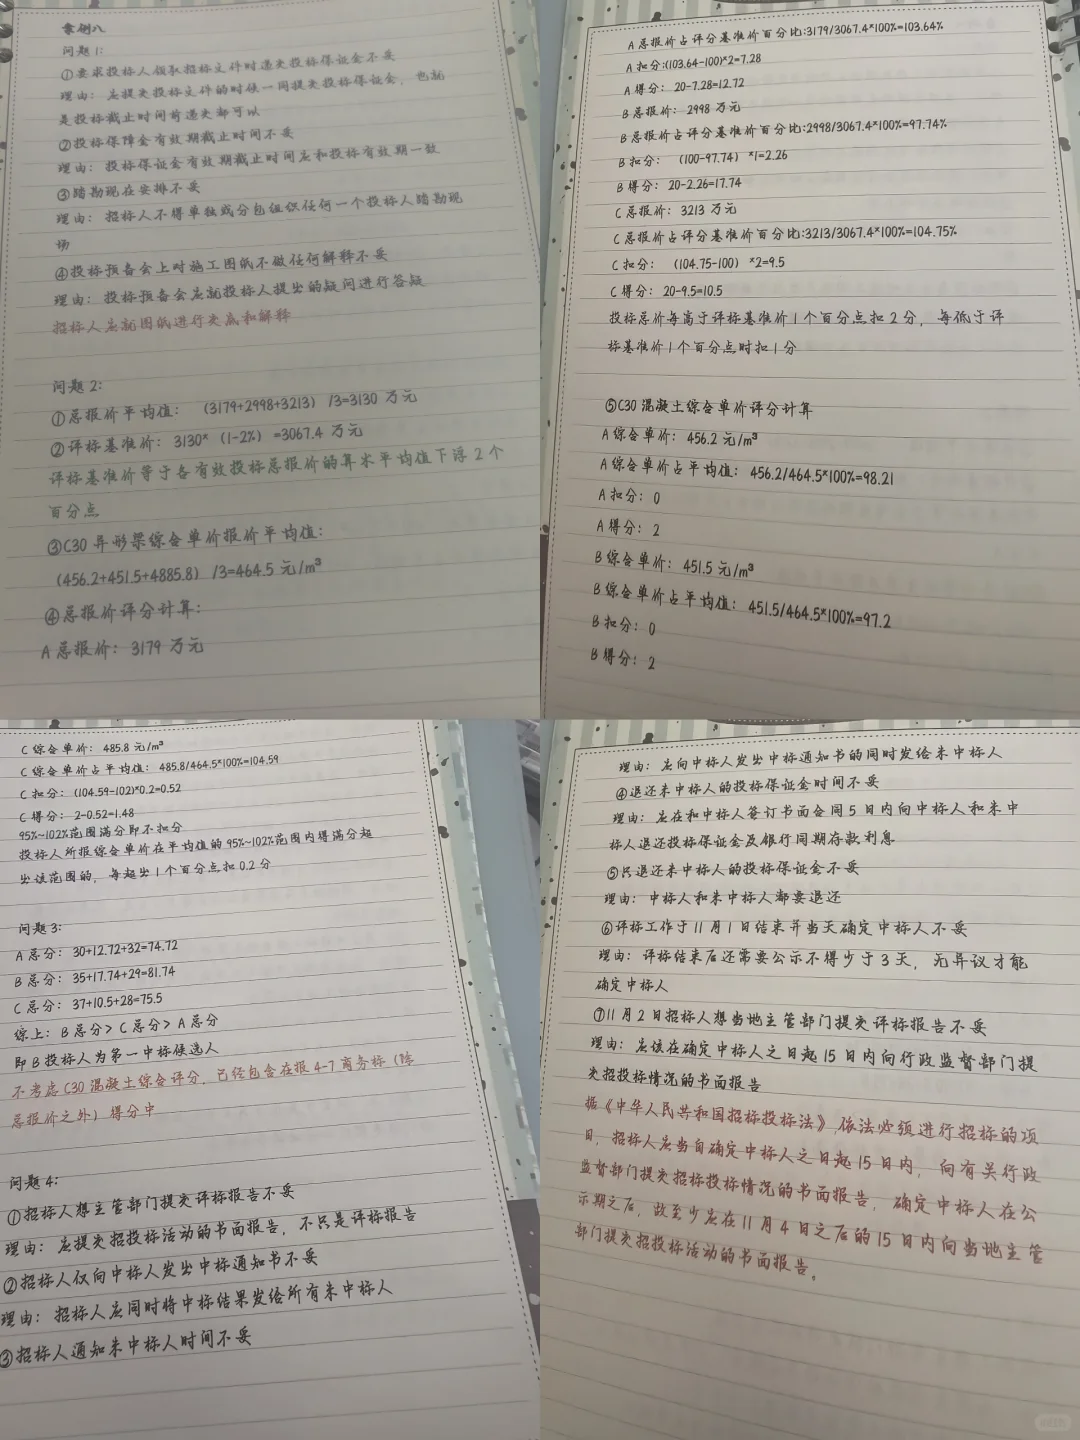 案例八
问题1:
①要求投标人领取招标文件时递交投标保证金不妥
理由：应提交投标文件的时候一同提交投标保证金，也就
是投标截止时间前递交都可以
②投标保障金有效期截止时间不妥
理由：投标保证金有效期截止时间应和投标有效期一致
③踏勘现在安排不妥
理由：招标人不得单独或分包组织任何一个投标人踏勘现
场
④投标预备会上对施工图纸不做任何解释不妥
理由：投标预备会应就投标人提出的疑问进行答疑
招标人应就图纸进行交底和解释
问题2:
①总报价平均值：（3179+2998+3213）/3=3130 万元
②评标基准价：3130*（1-2%）=3067.4 万元
评标基准价等于各有效投标总报价的算术平均值下浮2个
百分点
③C30异形梁综合单价报价平均值：
（456.2+451.5+4885.8）/3=464.5 元/m³
④总报价评分计算：
A总报价：3179 万元
A总报价占评分基准价百分比:3179/3067.4*100%=103.64%
A扣分:(103.64-100)*2=7.28
A得分：20-7.28=12.72
B总报价：2998 万元
B总报价占评分基准价百分比:2998/3067.4*100%=97.74%
B扣分：（100-97.74）*1=2.26
B得分：20-2.26=17.74
C总报价：3213 万元
C总报价占评分基准价百分比:3213/3067.4*100%=104.75%
C扣分：（104.75-100）*2=9.5
C得分：20-9.5=10.5
投标总价每高于评标基准价1个百分点扣2分，每低于评
标基准价1个百分点时扣1分
⑤C30混凝土综合单价评分计算
A综合单价：456.2 元/m³
A综合单价占平均值：456.2/464.5*100%=98.21
A扣分：0
A得分：2
B综合单价：451.5 元/m³
B综合单价占平均值：451.5/464.5*100%=97.2
B扣分：0
B得分：2
C综合单价：485.8 元/m³
C综合单价占平均值：485.8/464.5*100%=104.59
C扣分：(104.59-102)*0.2=0.52
C得分：2-0.52=1.48
95%~102%范围满分即不扣分
投标人所报综合单价在平均值的95%~102%范围内得满分超
出该范围的，每超出1个百分点扣0.2分
问题3:
A总分：30+12.72+32=74.72
B总分：35+17.74+29=81.74
C总分：37+10.5+28=75.5
综上：B总分>C总分>A总分
即B投标人为第一中标候选人
不考虑C30混凝土综合评分，已经包含在报4-7商务标（除
总报价之外）得分中
问题4:
①招标人想主管部门提交评标报告不妥
理由：应提交招投标活动的书面报告，不只是评标报告
②招标人仅向中标人发出中标通知书不妥
理由：招标人应同时将中标结果发给所有未中标人
③招标人通知未中标人时间不妥
理由：应向中标人发出中标通知书的同时发给未中标人
④退还未中标人的投标保证金时间不妥
理由：应在和中标人签订书面合同5日内向中标人和未中
标人退还投标保证金及银行同期存款利息
⑤只退还未中标人的投标保证金不妥
理由：中标人和未中标人都要退还
⑥评标工作于11月1日结束并当天确定中标人不妥
理由：评标结束后还需要公示不得少于3天，无异议才能
确定中标人
⑦11月2日招标人想当地主管部门提交评标报告不妥
理由：应该在确定中标人之日起15日内向行政监督部门提
交招投标情况的书面报告
据《中华人民共和国招标投标法》,依法必须进行招标的项
目，招标人应当自确定中标人之日起15日内，向有关行政
监督部门提交招标投标情况的书面报告，确定中标人在公
示期之后，故至少应在11月4日之后的15日内向当地主管
部门提交招投标活动的书面报告。